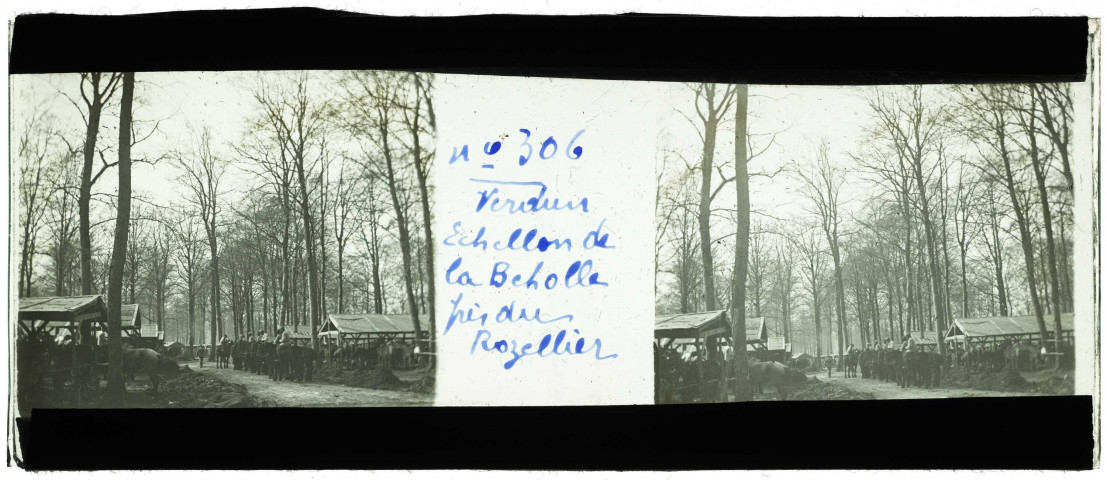 nº 306
Verdun
Echellon de
la Beholle
près du
Rozellier